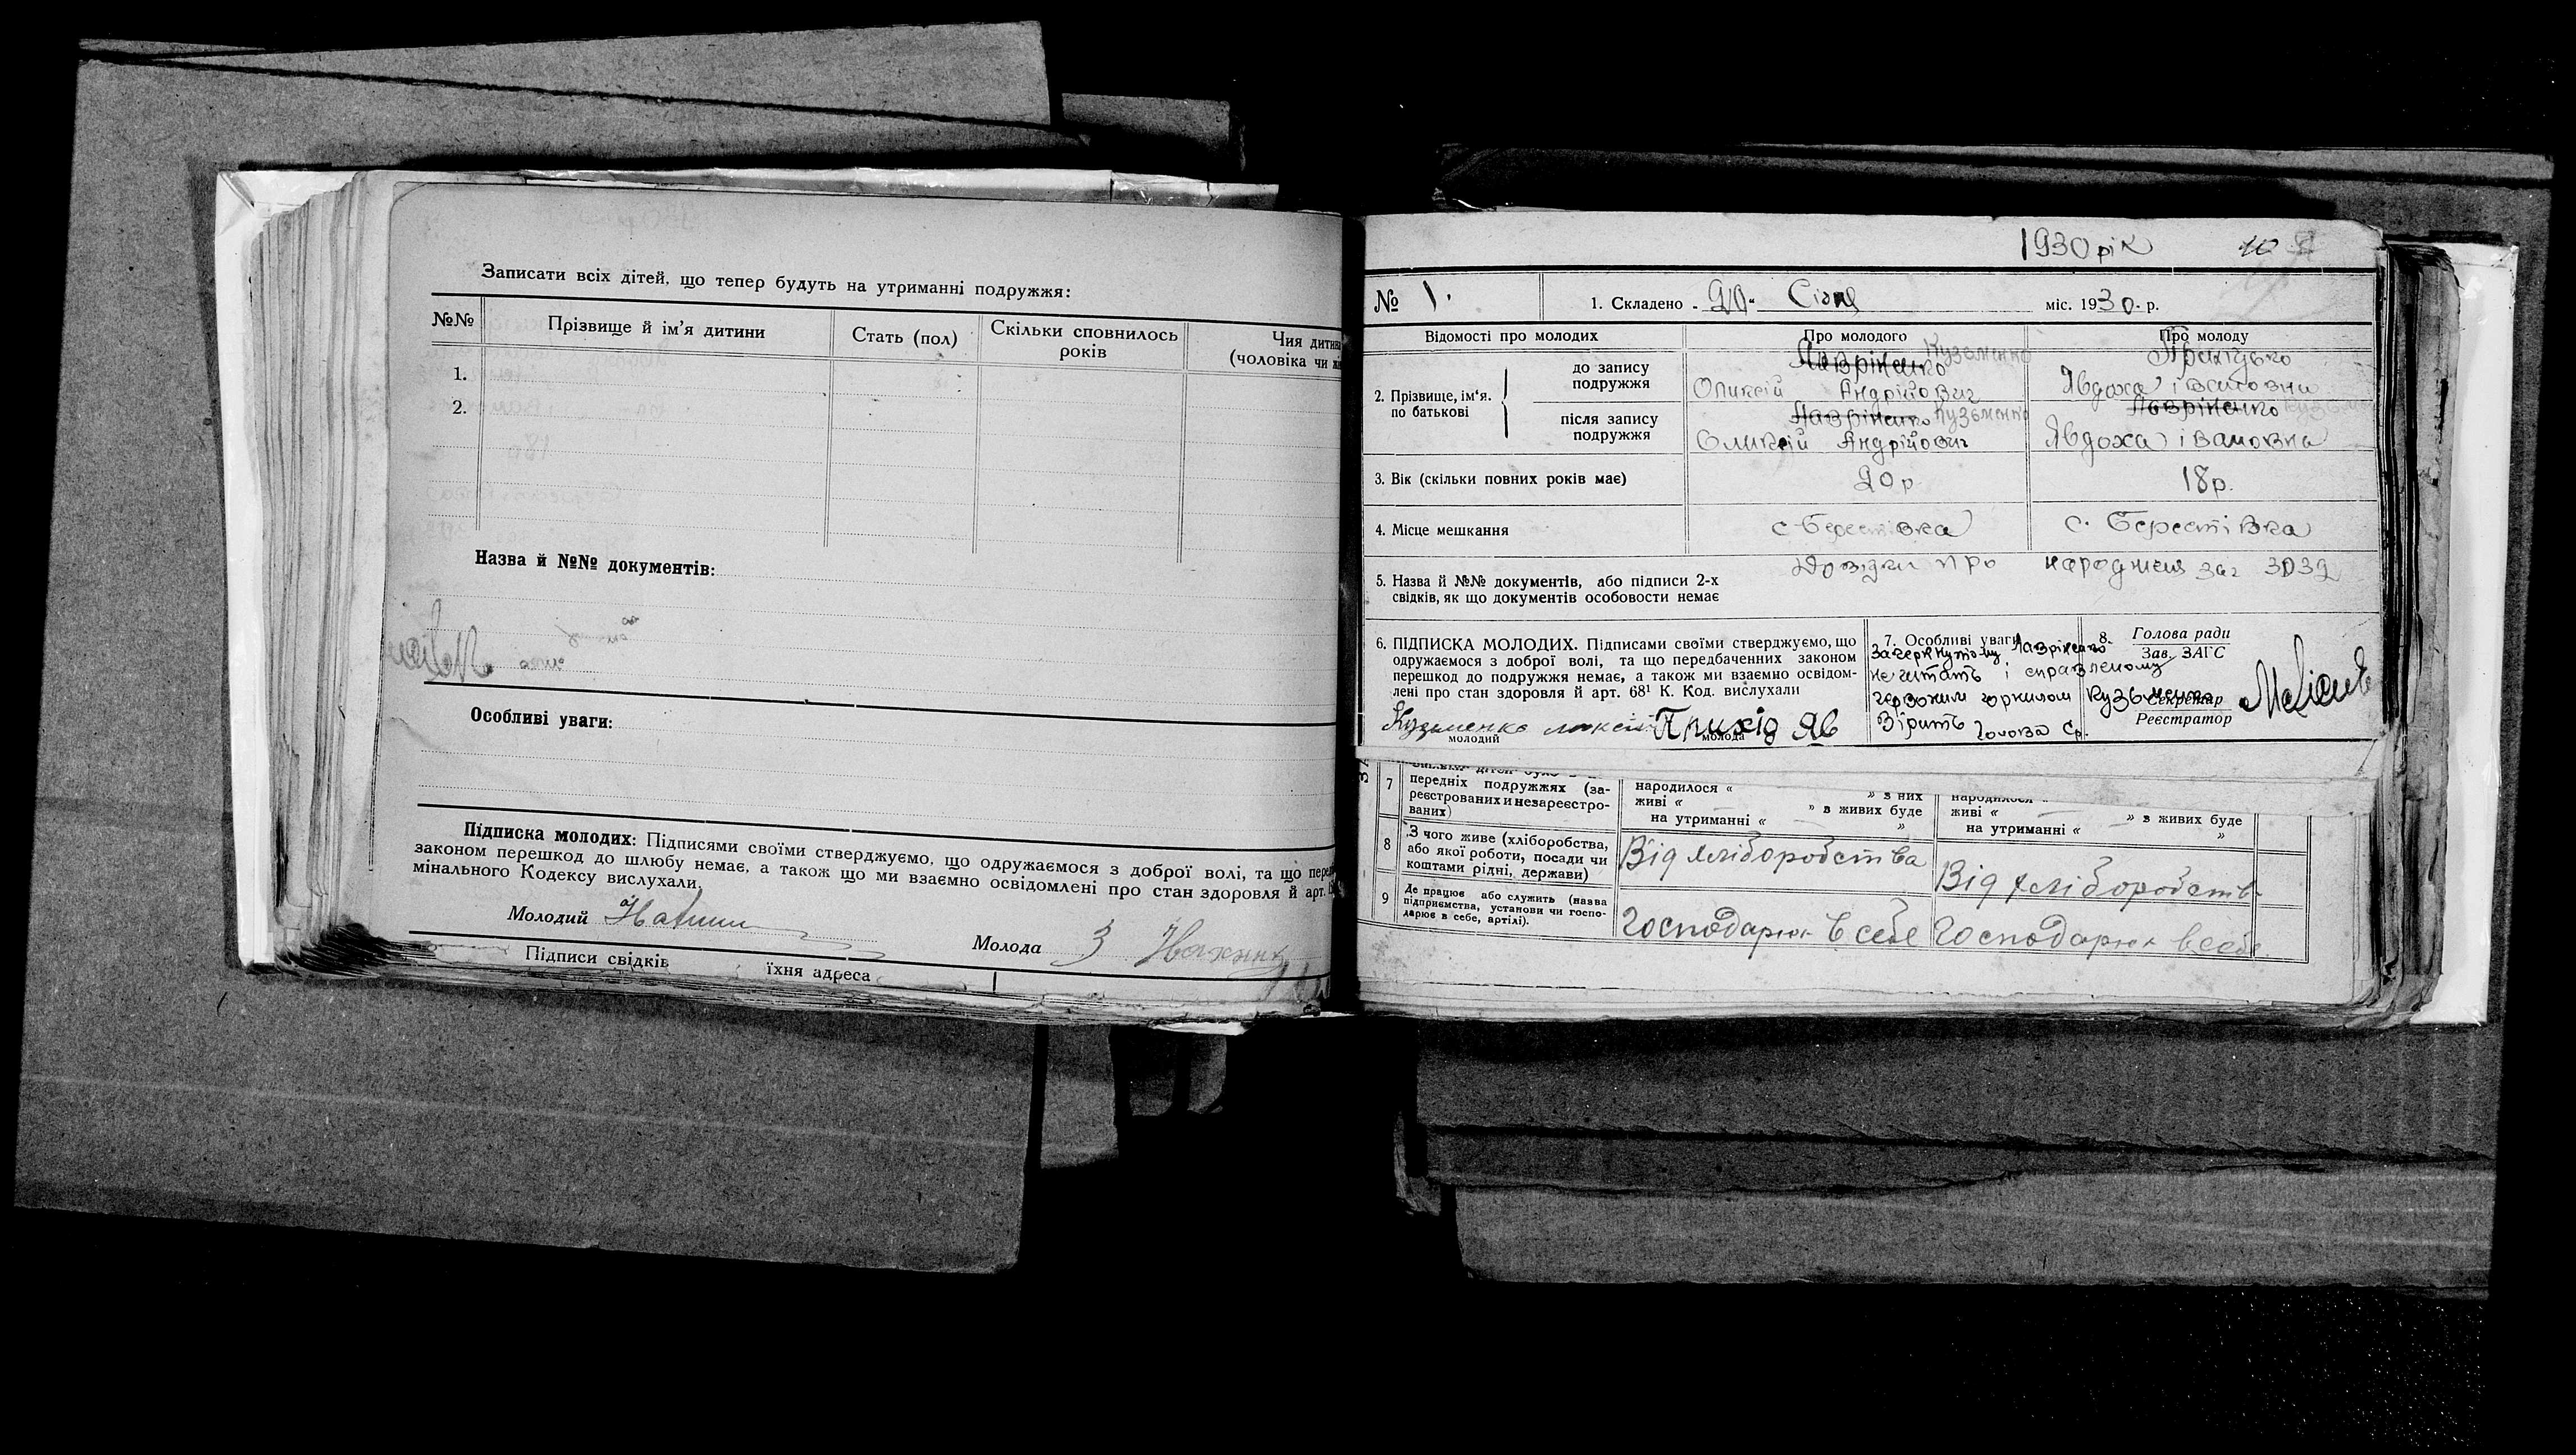 Записати всіх дітей, що тепер будуть на утриманні подружжя:
№№ Прізвище й ім'я дитини Стать (пол) Скільки сповнилось років Чия дитина (чоловіка чи
1.
2.
Назва й №№ документів:
Особливі уваги:
Підписка молодих: Підписями своїми стверджуємо, що одружаємося з доброї волі, та що
законом перешкод до шлюбу немає, а також що ми взаємно освідомлені про стан здоровля й арт.
мінального Кодексу вислухали.
Молодий
Молода З
Підписи свідків їхня адреса
1930 рік 10
№ 1. 1. Складено „20“ Січня міс. 1930 р.
Відомості про молодих Про молодого Про молоду
2. Прізвище, ім'я. по батькові
до запису подружжя Лавріненко Кузьменко
Оликсій Андрійович Явдоха івановна
після запису подружжя Лавріненко Кузьменко Лавріненко
Оликсій Андрійович Явдоха івановна
3. Вік (скільки повних років має) 20 р. 18 р.
4. Місце мешкання с. Берестівка с. Берестівка
5. Назва й №№ документів, або підписи 2-х
свідків, як що документів особовости немає
Довідки про народження
6. ПІДПИСКА МОЛОДИХ. Підписами своїми стверджуємо, що
одружаємося з доброї волі, та що передбаченних законом
перешкод до подружжя немає, а також ми взаємно освідом-
лені про стан здоровля й арт. 68¹ К. Код. вислухали
Кузьменко Прихід Яв
молодий молода
7. Особливі уваги
Зачеркнутому Лавріненко
не читать і справленому
червоним чорнилом Кузьменко
Вірить Голова Ср.
8. Голова ради
Зав. ЗАГС
Секретар
Реєстратор
7 передніх подружжях (за-
реєстрованих и незареєстро-
ваних)
народилося « » з них
живі « » з живих буде
на утриманні « »
народилося «
живі « » з живих буде
на утриманні « »
8 З чого живе (хліборобства,
або якої роботи, посади чи
коштами рідні, держави)
Від хліборобства Від хліборобств
9 Де працює або служить (назва
підприємства, установи чи госпо-
дарює в себе, артілі).
Господарює в себе Господарює в себе